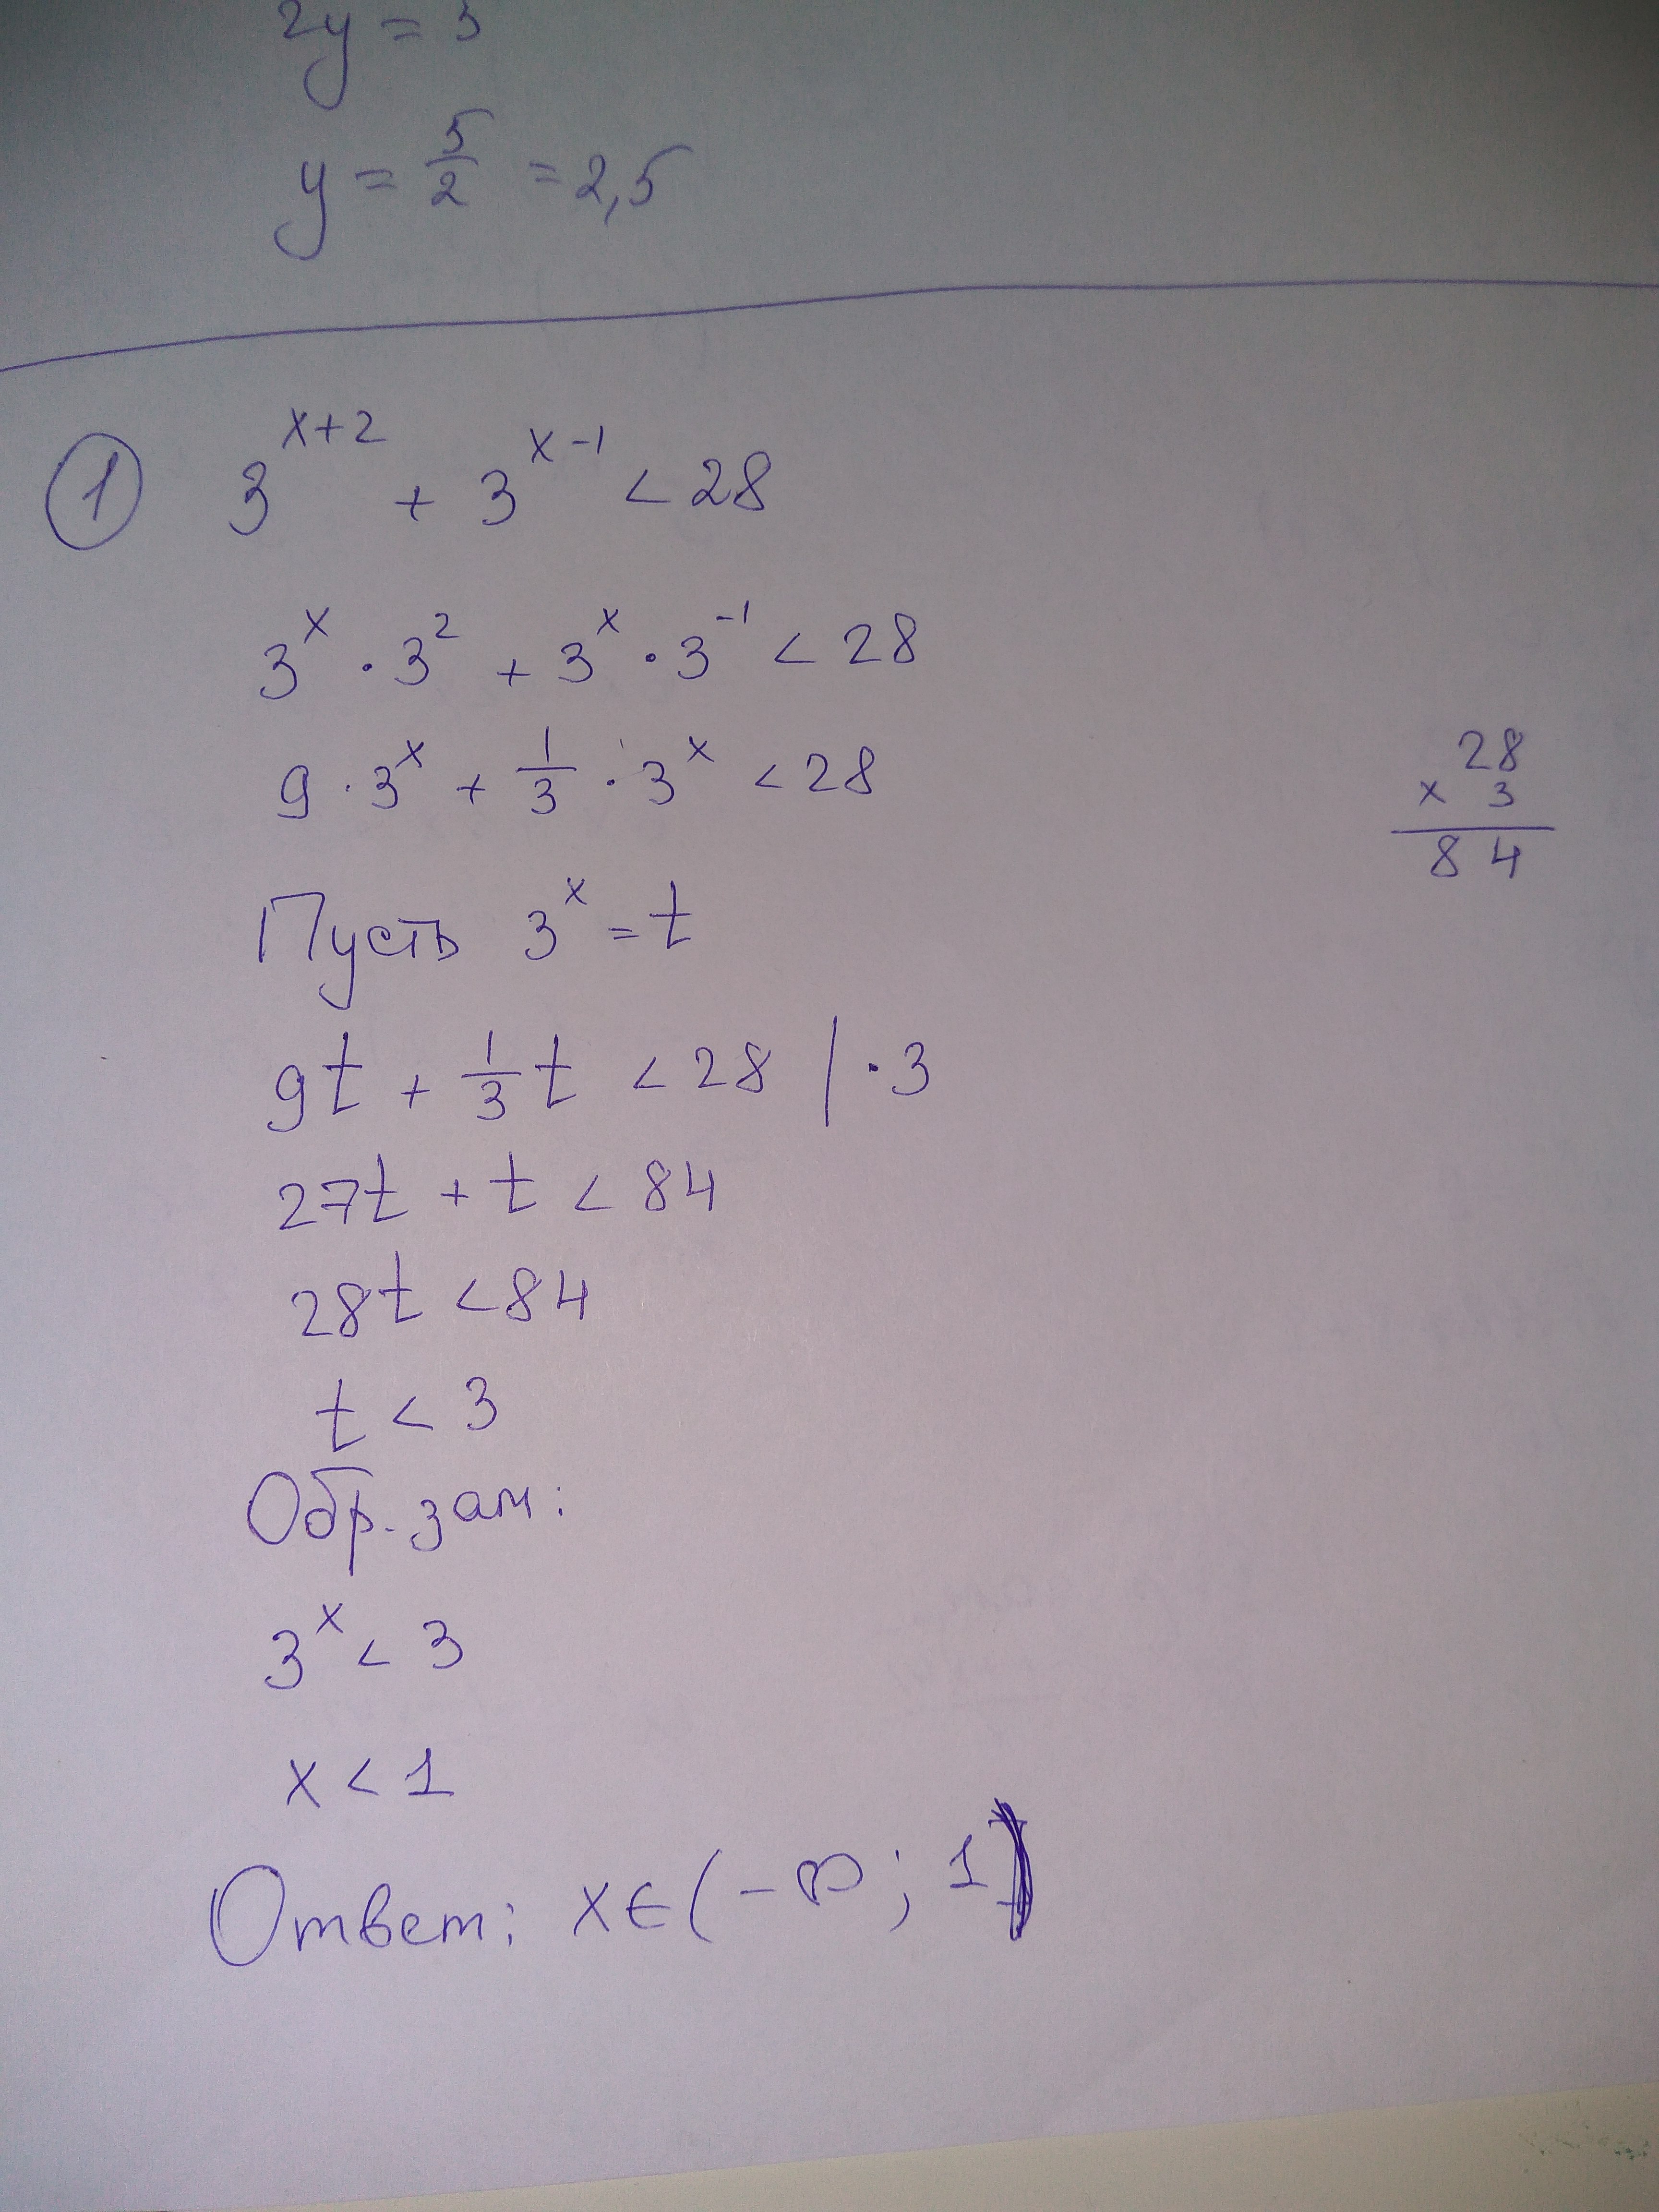 2y = 5
y = 5/2 = 2,5
① 3^(x+2) + 3^(x-1) < 28
3^x · 3^2 + 3^x · 3^-1 < 28
9 · 3^x + 1/3 · 3^x < 28
28
× 3
84
Пусть 3^x = t
9t + 1/3 t < 28 | · 3
27t + t < 84
28t < 84
t < 3
Обр. зам:
3^x < 3
x < 1
Ответ: x ∈ (-∞; 1)